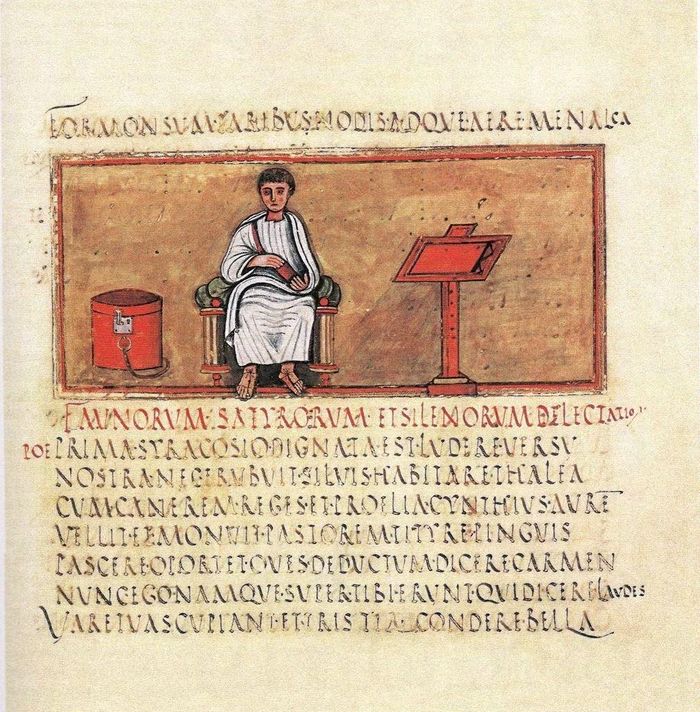 FORMONSVM·PARIBVS·NODIS·ADQVE·AERE·MENALCA
FAVNORVM·SATYRORVM·ET·SILENORVM·DELECTATIO
POE PRIMA·SYRACOSIO·DIGNATA·EST·LVDERE·VERSV
NOSTRA·NEC·ERVBVIT·SILVIS·HABITARE·THALEA
CVM·CANEREM·REGES·ET·PROELIA·CYNTHIVS·AVRE
VELLIT·ET·MONVIT·PASTOREM·TITYRE·PINGVIS
PASCERE·OPORTET·OVES·DEDVCTVM·DICERE·CARMEN
NVNC·EGO·NAMQVE·SVPER·TIBI·ERVNT·QVI·DICERE·LAVDES
VARE·TVAS·CVPIANT·ET·TRISTIA·CONDERE·BELLA